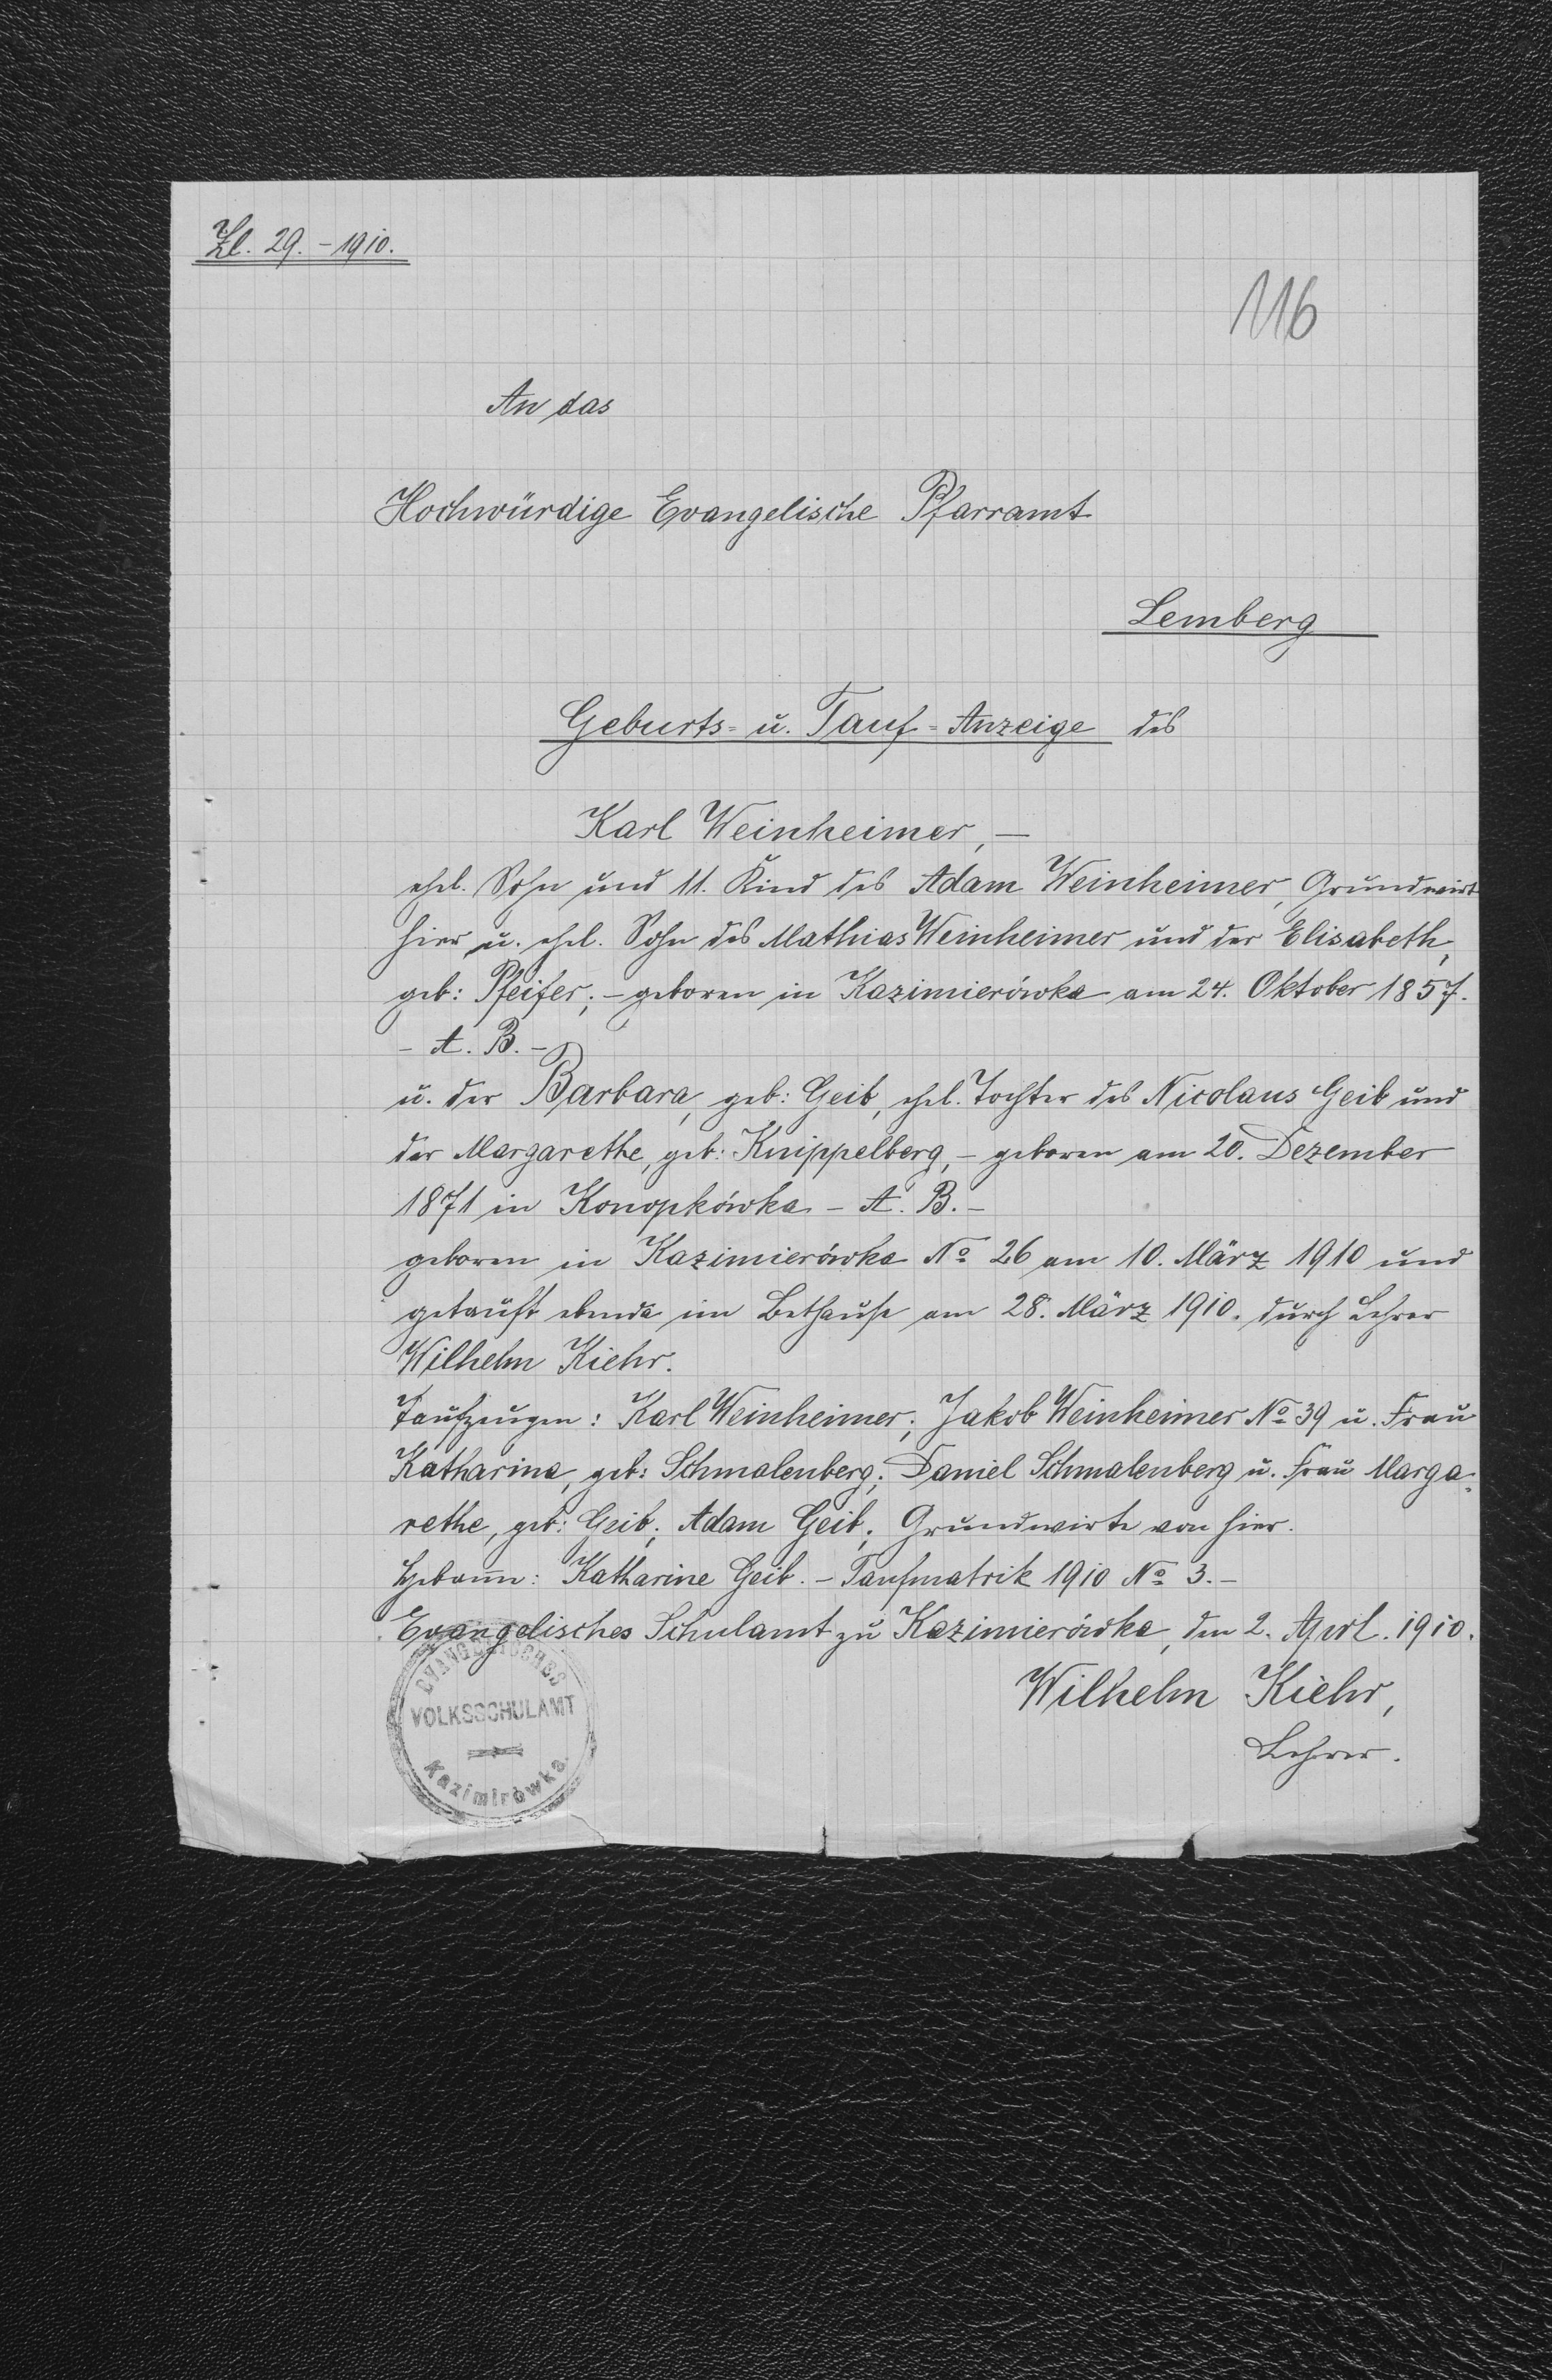 Zl. 29. - 1910.
116
An das
Hochwürdige Evangelische Pfarramt
Lemberg
Geburts- u. Tauf-Anzeige des
Karl Weinheimer, –
ehel. Sohn und 11. Kind des Adam Weinheimer, Grundwirt
hier u. ehel. Sohn des Mathias Weinheimer und der Elisabeth,
geb: Pfeifer; – geboren in Kazimierówka am 24. Oktober 1857.
– A. B. –
u. der Barbara, geb: Geib, ehel. Tochter des Nicolaus Geib und
der Margarethe, geb: Knippelberg, – geboren am 20. Dezember
1871 in Konopkówka – A. B. –
geboren in Kazimierówka No 26 am 10. März 1910 und
getauft ebenda im Bethause am 28. März 1910. durch Lehrer
Wilhelm Kiehr.
Taufzeugen: Karl Weinheimer; Jakob Weinheimer No 39 u. Frau
Katharina, geb: Schmalenberg; Daniel Schmalenberg u. Frau Marga-
rethe, geb: Geib; Adam Geib; Grundwirte von hier.
Hebamme: Katharine Geib. – Taufmatrik 1910 No 3. –
Evangelisches Schulamt zu Kazimierówka, den 2. April. 1910.
Wilhelm Kiehr,
Lehrer.
EVANGELISCHES
VOLKSSCHULAMT
Kazimirówka.